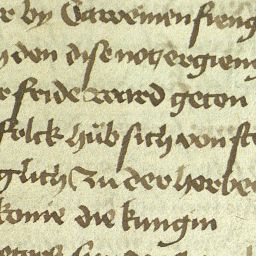 by Garwemen fieng
den dise not ergieng
fride ward geton
folck hůb sich von ste
glich Zu der herber
konie die kungin